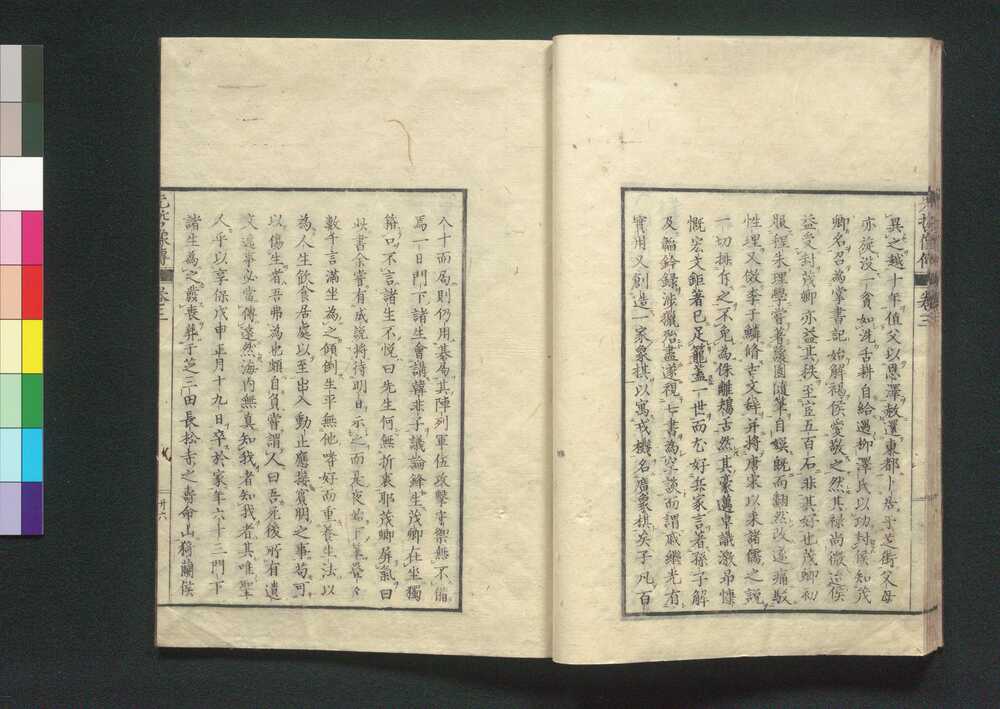 異之越十年值父以恩澤赦還東都卜居于芝街父母
亦旋没一貧如洗舌耕自給遇柳澤氏以功封侯知茂
卿名召為掌書記始解褐侯愛敬之然其禄尚微迨侯
益受封茂卿亦益其秩至豈五百石非其好也茂卿初
服程朱理學嘗著蘐園隨筆自娯既而翻然改遂痛駁
性理又倣李于鱗脩古文辭并將唐宋以来諸儒之説
一切排斥之不免為侏離楊古然其豪邁卓識激昂慷
慨宏文鉅著已足籠蓋一世而尤好兵家言著孫子解
及鈐録涉獵殆盡遂視七書為空談而謂戚繼光有
實用又創造一家象棋以寓戎機名廣象棋矣子凡百
八十面局則仍用碁局其陣列軍伍攻擊守禦無不備
焉一日門下諸生會講韓非子議論鋒生茂卿在坐獨
箝口不言諸生不悦曰先生何無折衷耶茂卿屏氣曰
此書余嘗有成説將待明日示之而是夜始下筆
數千言滿坐為之傾倒生平無他嗜好而重養生法以
為人生飲食居處以至出入動止應接賓朋之事苟可
以傷生者吾弗為也頗自負嘗謂人曰吾死後所有遺
文遺事必當傳遠然海内無真知我者知我者其唯聖
人乎以享保戊申正月十九日卒於家年六十三門下
諸生為之發喪葬于芝三田長松寺之壽命山猗蘭侯
卷三
廿六